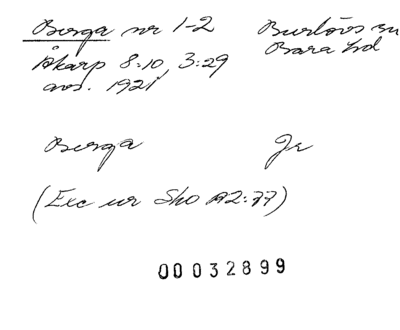 Burga nr 1-2
Burlövs sn
Bara hd
Åkarp 8:10, 3:29
avs. 1921
Burga
Jr
(Exc ur Sko A2:77)
00032899